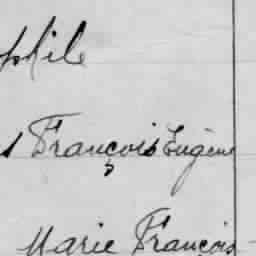 phile
s François Eugène
Marie François